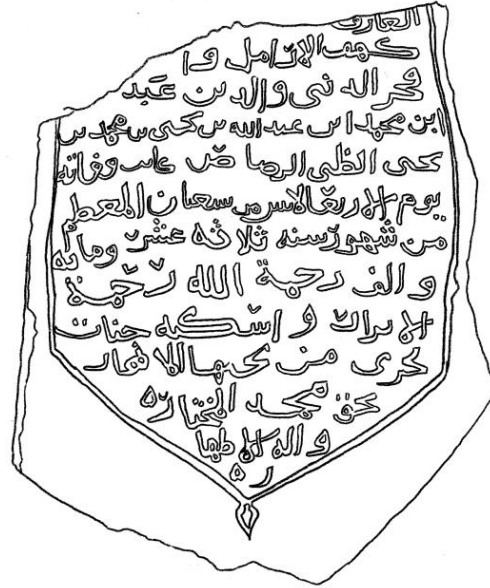 العارف
كهف الارامل وا
فخر الدنى والدين عبد
ابن محمد ابن عبدالله بن يحيى بن محمد بن
يحيى الرصاص كانت وفاته
يوم الاربعا من شعبان المعظم
من شهور سنه ثلاثه عشر ومائه
والف رحمة الله رحمة
الابرار واسكنه جنات
تجرى من تحتها الانهار
بحق محمد المختار
واله الاطها
ر